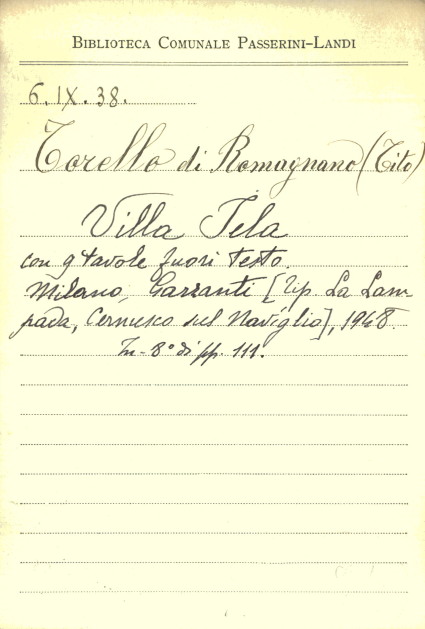 BIBLIOTECA COMUNALE PASSERINI-LANDI
6.IX.38.
Torello di Romagnano (Tito)
Villa Tela
con 9 tavole fuori testo.
Milano, Garzanti [Tip. La Lam-
pada, Cernusco sul Naviglio], 1948.
In-8° di pp. 111.